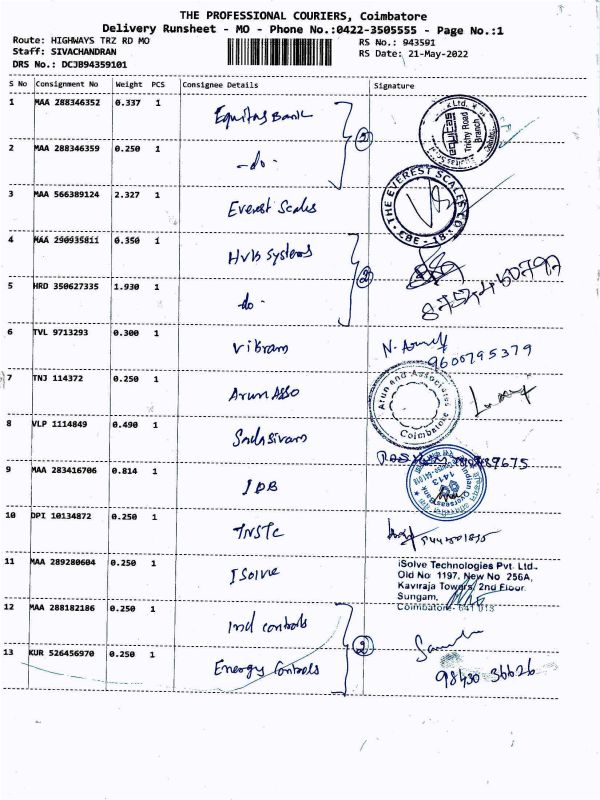 THE PROFESSIONAL COURIERS, Coimbatore
Delivery Runsheet - MO - Phone No.:0422-3505555 - Page No.:1
Route: HIGHWAYS TRZ RD MO
RS No.: 943591
Staff: SIVACHANDRAN
RS Date: 21-May-2022
DRS No.: DCJB94359101
S No Consignment No Weight PCS Consignee Details Signature
1 MAA 288346352 0.337 1 Equitas Bank
2
equitas
Trichy Road
Branch
2 MAA 288346359 0.250 1 -do-
3 MAA 566389124 2.327 1 Everest Scales
THE EVEREST SCALES
CBE - 18
4 MAA 290935811 0.350 1 Hvb Systems
2
5 HRD 350627335 1.930 1 do-
6 TVL 9713293 0.300 1 Vikram
9600795379
7 TNJ 114372 0.250 1 Arun Asso
Arun and Associates
Coimbatore
8 VLP 1114849 0.490 1 Sadasivam
9 MAA 283416706 0.814 1 IOB
Indian Overseas Bank
1413
10 DPI 10134872 0.250 1 TNSTC
11 MAA 289280604 0.250 1 ISolve
iSolve Technologies Pvt. Ltd.,
Old No: 1197, New No 256A,
Kaviraja Towers, 2nd Floor
Sungam,
Coimbatore- 641 018
12 MAA 288182186 0.250 1 Ind controls
2
13 KUR 526456970 0.250 1 Energy Controls
98430 36626